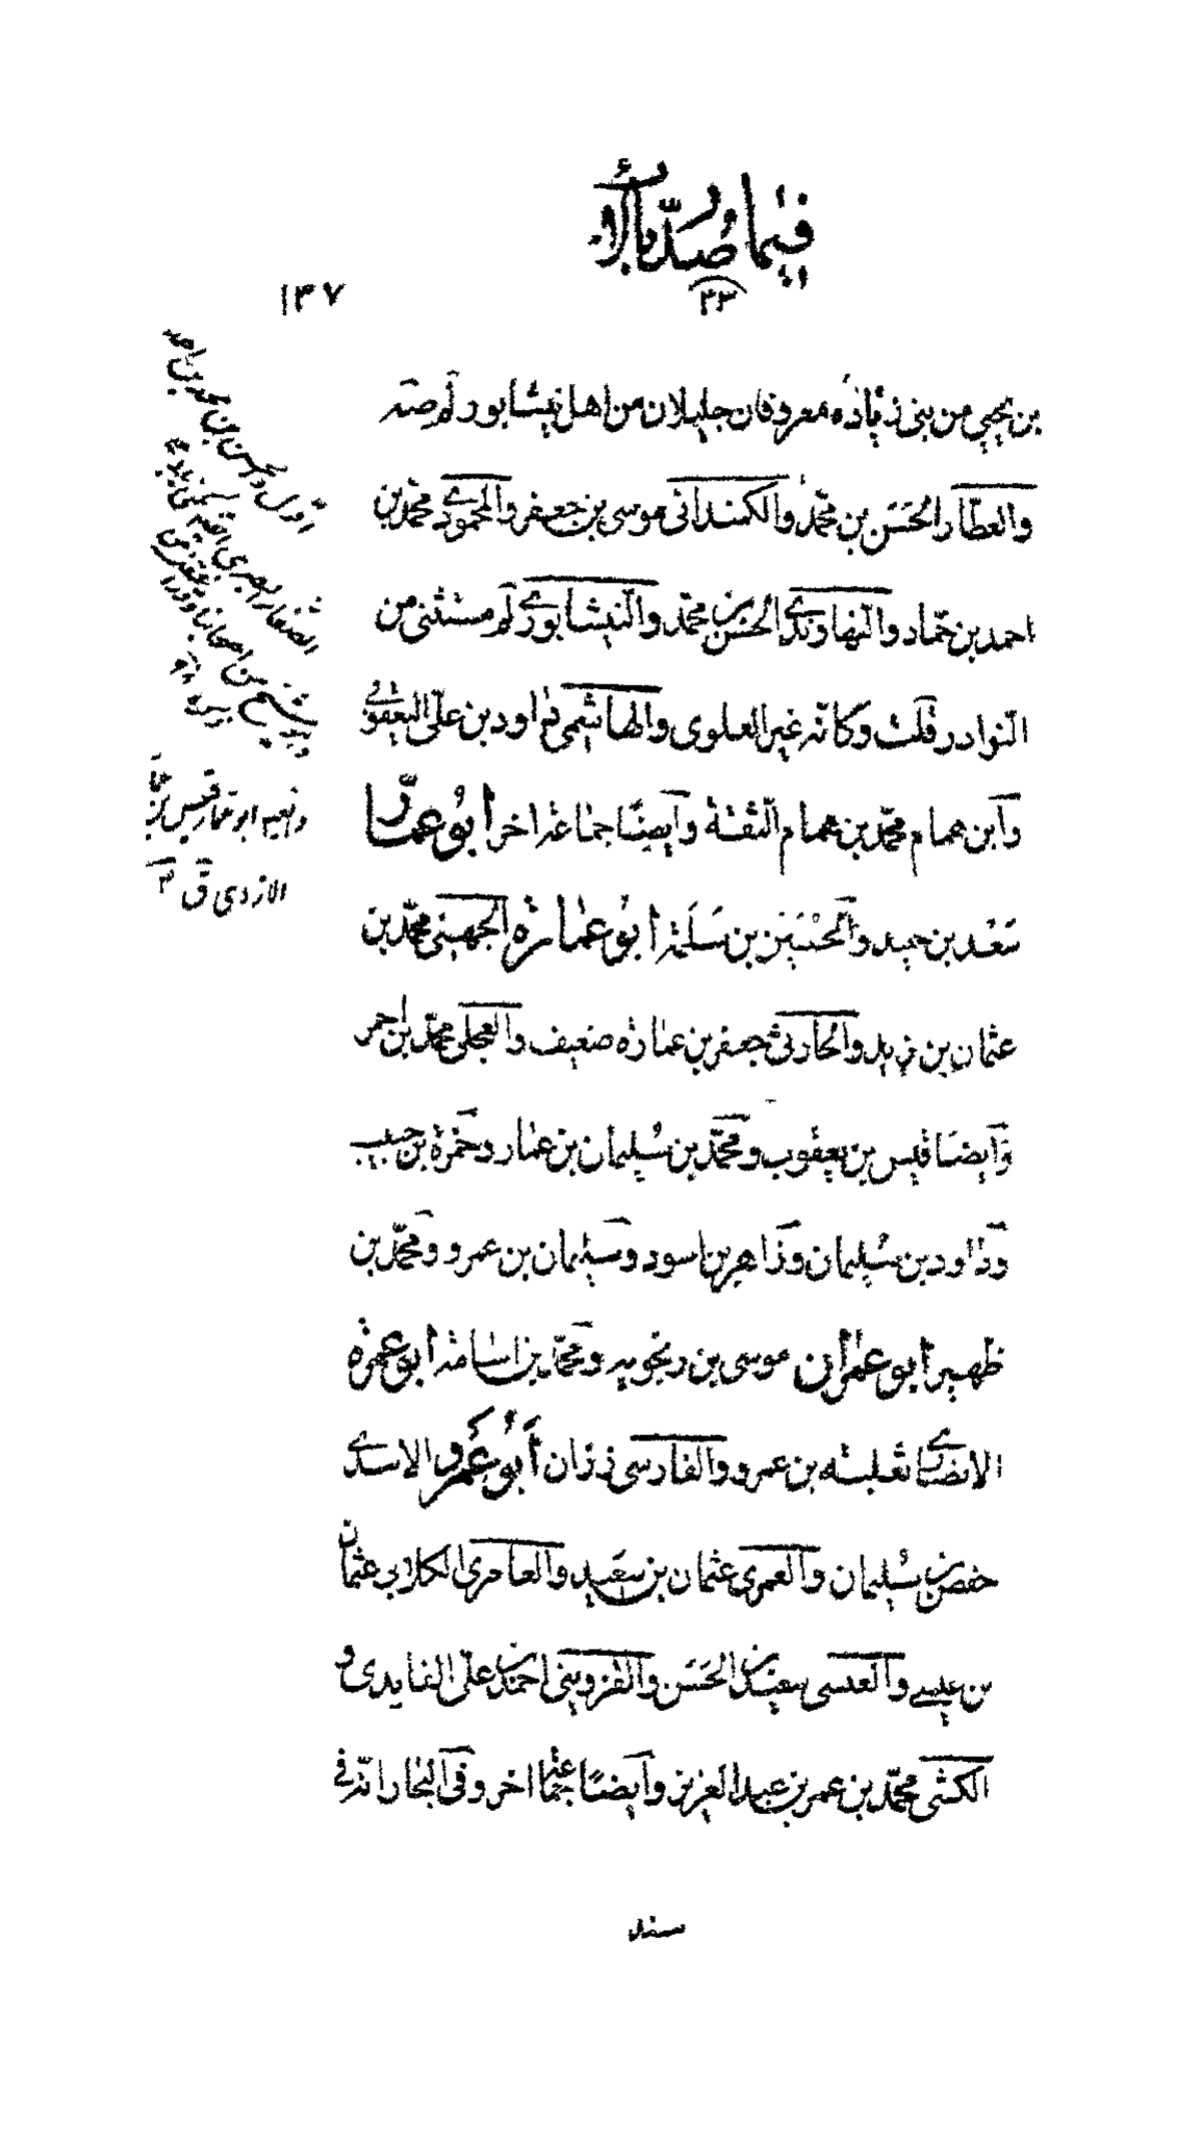 فيما صُدّر بالاب
٣٣
١٣٧
بن يحيي من بنى زياده معروفان جليلان من اهل نيشابور لم صه
والعطّار الحَسَن بن محمّد والكمندانى موسى بن جعفر والمحمودى محمّد بن
احمد بن حمّاد والنهاوندى الحسن بن محمّد والنيشابورى لم مستثنى من
النوادر قلت وكانّه غير العلوى والهاشمى داود بن علىّ اليعقوبى
وآبن همام محمّد بن همام الثقة وآيضًا جماعة اخر ابو عمّار
سَعْد بن حميد والحسين بن سَلَمة ابو عمارة الجهنى محمّد بن
عثمان بن زيد والحارثى جعفر بن عمارة ضعيف والعجلى محمّد بن احمر
وآيضَا قيس بن يعقوب ومحمّد بن سُليمان بن عمار وحمزة بن حبيب
وداود بن سُليمان وزاهر بن اسود وسليمان بن عمرو ومحمّد بن
ظهير ابو عمران موسى بن رنجويه ومحمّد بن اسامة ابو عمرة
الانصارى ثعلبه بن عمرو والفارسى زاذان أبُو عَمرو الاسدى
حفص بن سُليمان والعمرى عثمان بن سَعَيد والعامرى الكلابى عثمان
بن عيسى والعبسى سعيد بن الحَسَن والقزوينى احمد بن علىّ الفايدى و
الكشى محمّد بن عمر بن عبد العزيز وآيضًا جماعة اخر وفى البحار انّه فى
سند
اقول والحسن بن محمد بن احمد
الصفار البصرى
شيخ من اصحابنا ثقة
وفيه ابو عمار قيس بن
الازدى ق